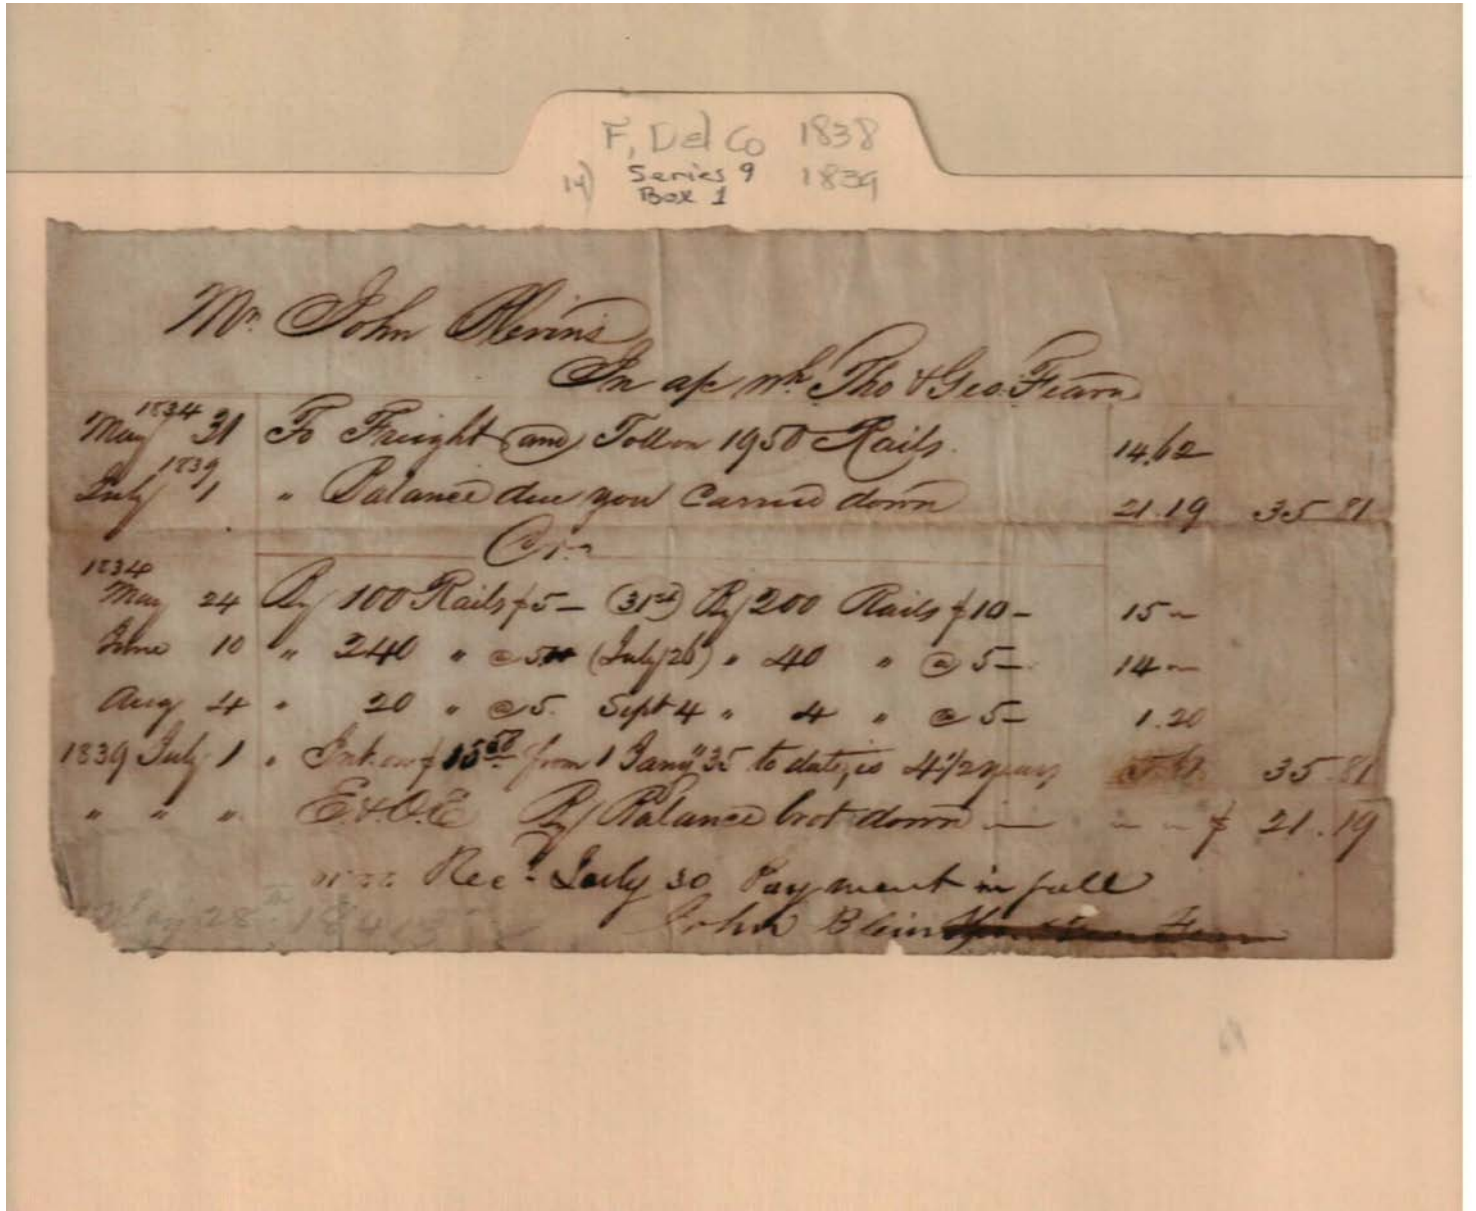 F, Del Co 1838
14) Series 9 1839
Box 1
Mr. John Blevins
In a/c wh. Tho & Geo. Fearn
1834
May 31 To Freight and Toll on 1950 Rails. 14.62
1839
July 1 " Balance due you Carried down 21.19 35 81
Cr.
1834
May 24 By 100 Rails $5— (31st) By 200 Rails $10— 15—
June 10 " 240 " @ 5 (July 26) " 40 " @ 5— 14—
Aug 4 " 20 " @ 5. Sept 4 " 4 " @ 5— 1.20
1839 July 1 " Int. on $15 58 from 1 Jany 35 to date, is 4 1/2 years 35-81
" " " E & O. E By Balance brot down — — — $ 21.19
Rec. July 30 Payment in full
May 28 184
John Blevins